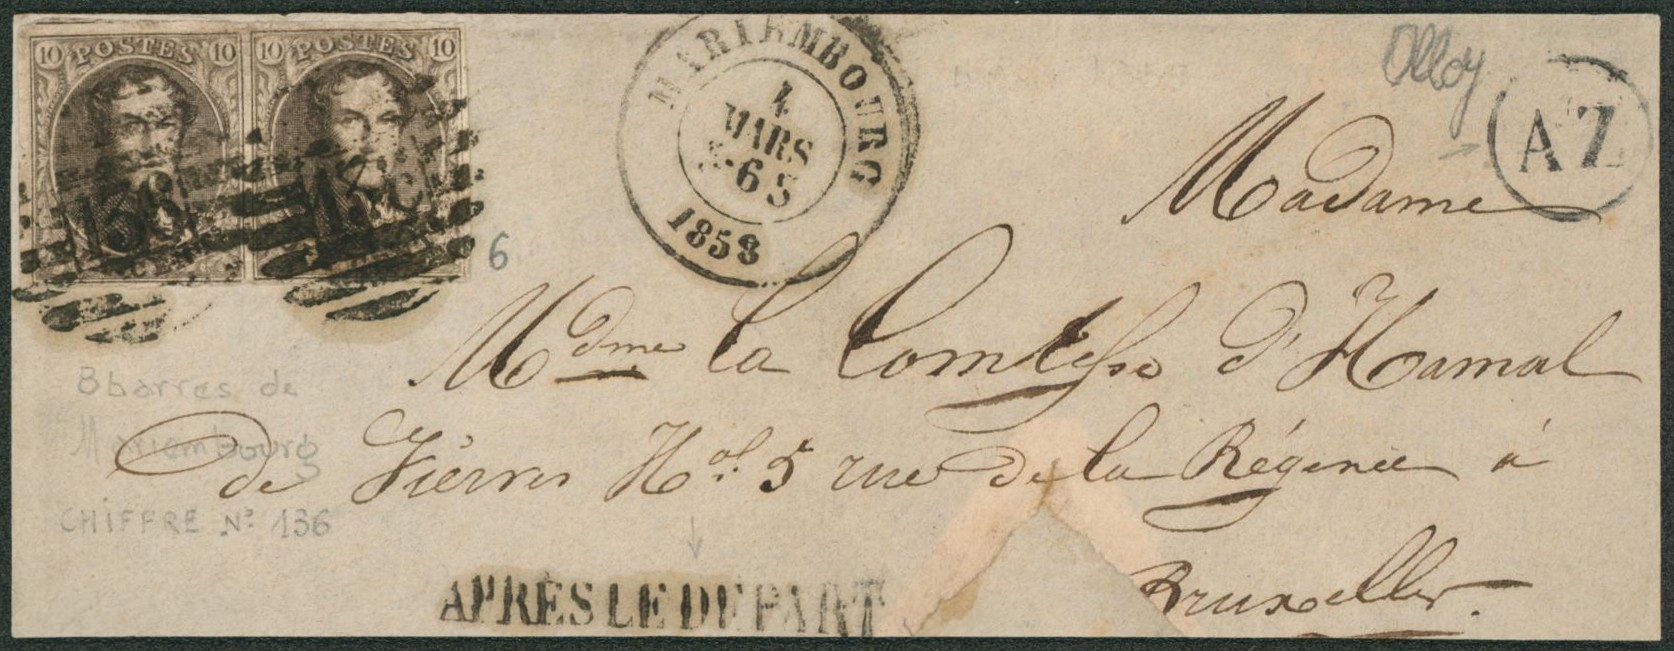 10 POSTES 10 10 POSTES 10
136 136
6
MARIEMBOURG
4
MARS
5-6 S
1858
Olloy
AZ
Madame
Mdme la Comtesse d'Hamal
8 barres de
Mariembourg
de Vierves Hol 5 rue de la Régence à
CHIFFRE N° 136
APRÈS LE DEPART
Bruxelles.